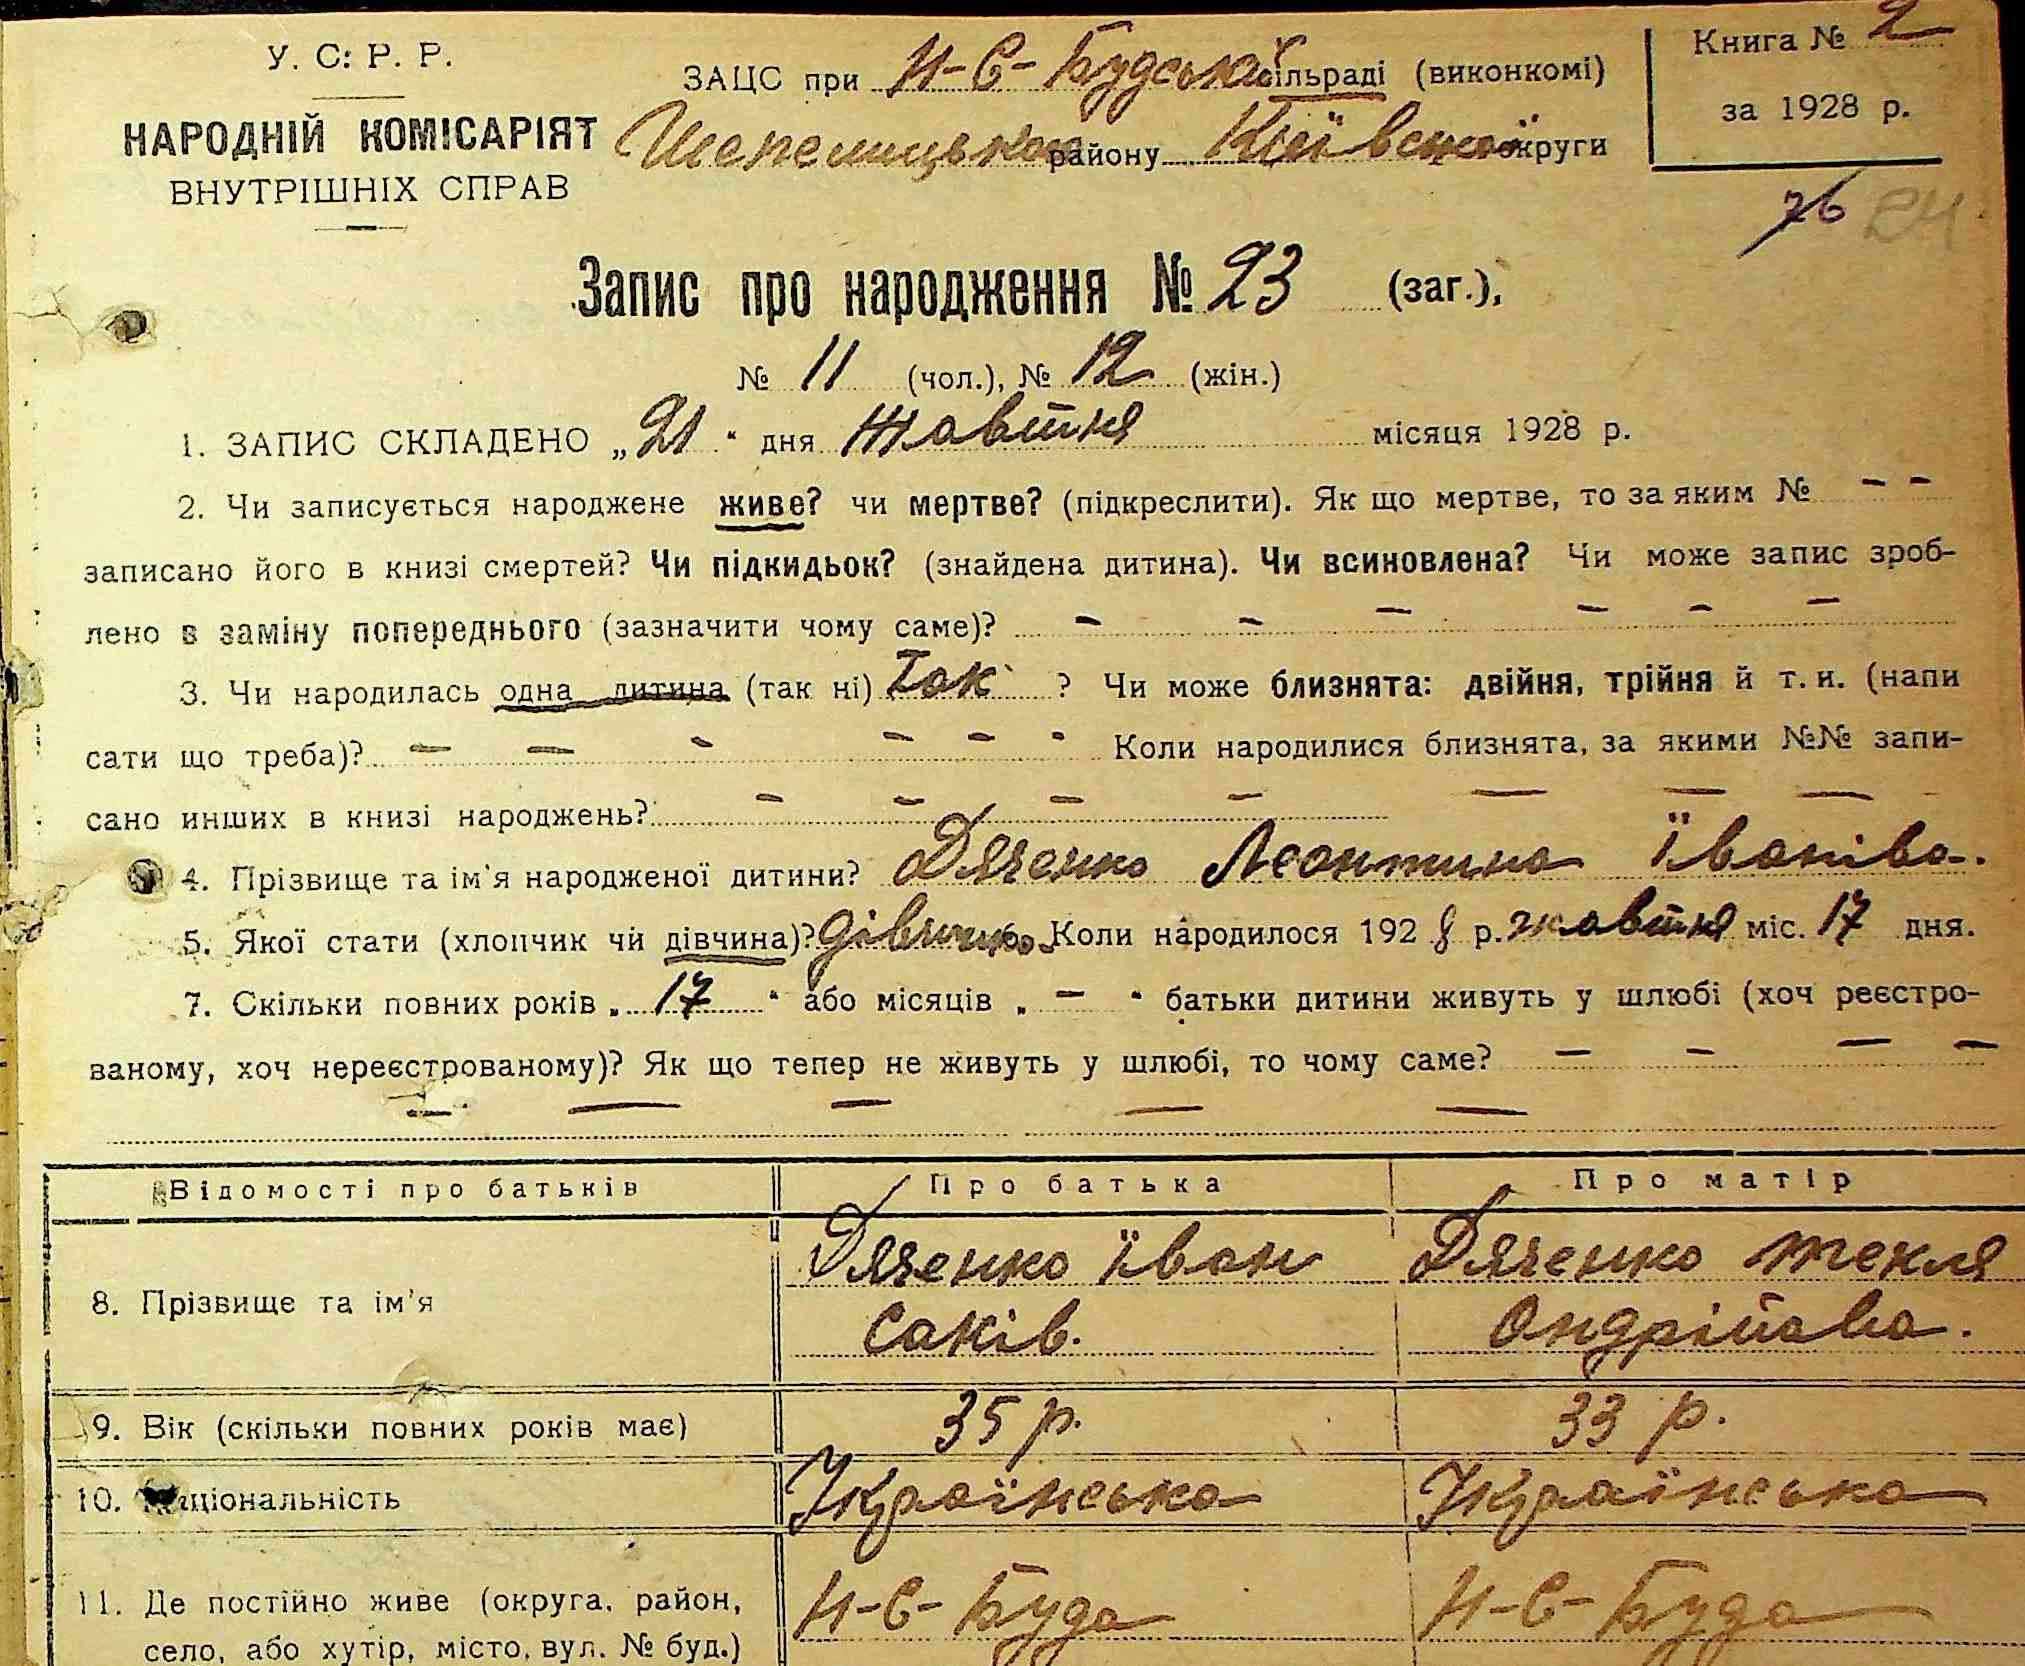 У. С. Р. Р.
НАРОДНІЙ КОМІСАРІЯТ
ВНУТРІШНІХ СПРАВ
ЗАЦС при Н-С-Будській сільраді (виконкомі)
Шепелицького району Київської округи
Книга № 2
за 1928 р.
76 24
Запис про народження № 23 (заг.),
№ 11 (чол.), № 12 (жін.)
1. ЗАПИС СКЛАДЕНО „21" дня Жовтня місяця 1928 р.
2. Чи записується народжене живе? чи мертве? (підкреслити). Як що мертве, то за яким № – –
записано його в книзі смертей? Чи підкидьок? (знайдена дитина). Чи всиновлена? Чи може запис зроб-
лено в заміну попереднього (зазначити чому саме)? – – – – – –
3. Чи народилась одна дитина (так ні) Так ? Чи може близнята: двійня, трійня й т. и. (напи
сати що треба)? – – – – – – Коли народилися близнята, за якими №№ запи-
сано инших в книзі народжень? – – – – – – –
4. Прізвище та ім'я народженої дитини? Дяченко Леонтина Їванівна.
5. Якої стати (хлопчик чи дівчина)? дівчина. Коли народилося 1928 р. жовтня міс. 17 дня.
7. Скільки повних років „17" або місяців „–" батьки дитини живуть у шлюбі (хоч реєстро-
ваному, хоч нереєстрованому)? Як що тепер не живуть у шлюбі, то чому саме? – – – –
– – – – –
Відомості про батьків Про батька Про матір
8. Прізвище та ім'я Дяченко Їван Саків. Дяченко Текля Ондрійова.
9. Вік (скільки повних років має) 35 р. 33 р.
10. Національність Українська Українська
11. Де постійно живе (округа, район, Н-С-Буда Н-С-Буда
село, або хутір, місто, вул. № буд.)